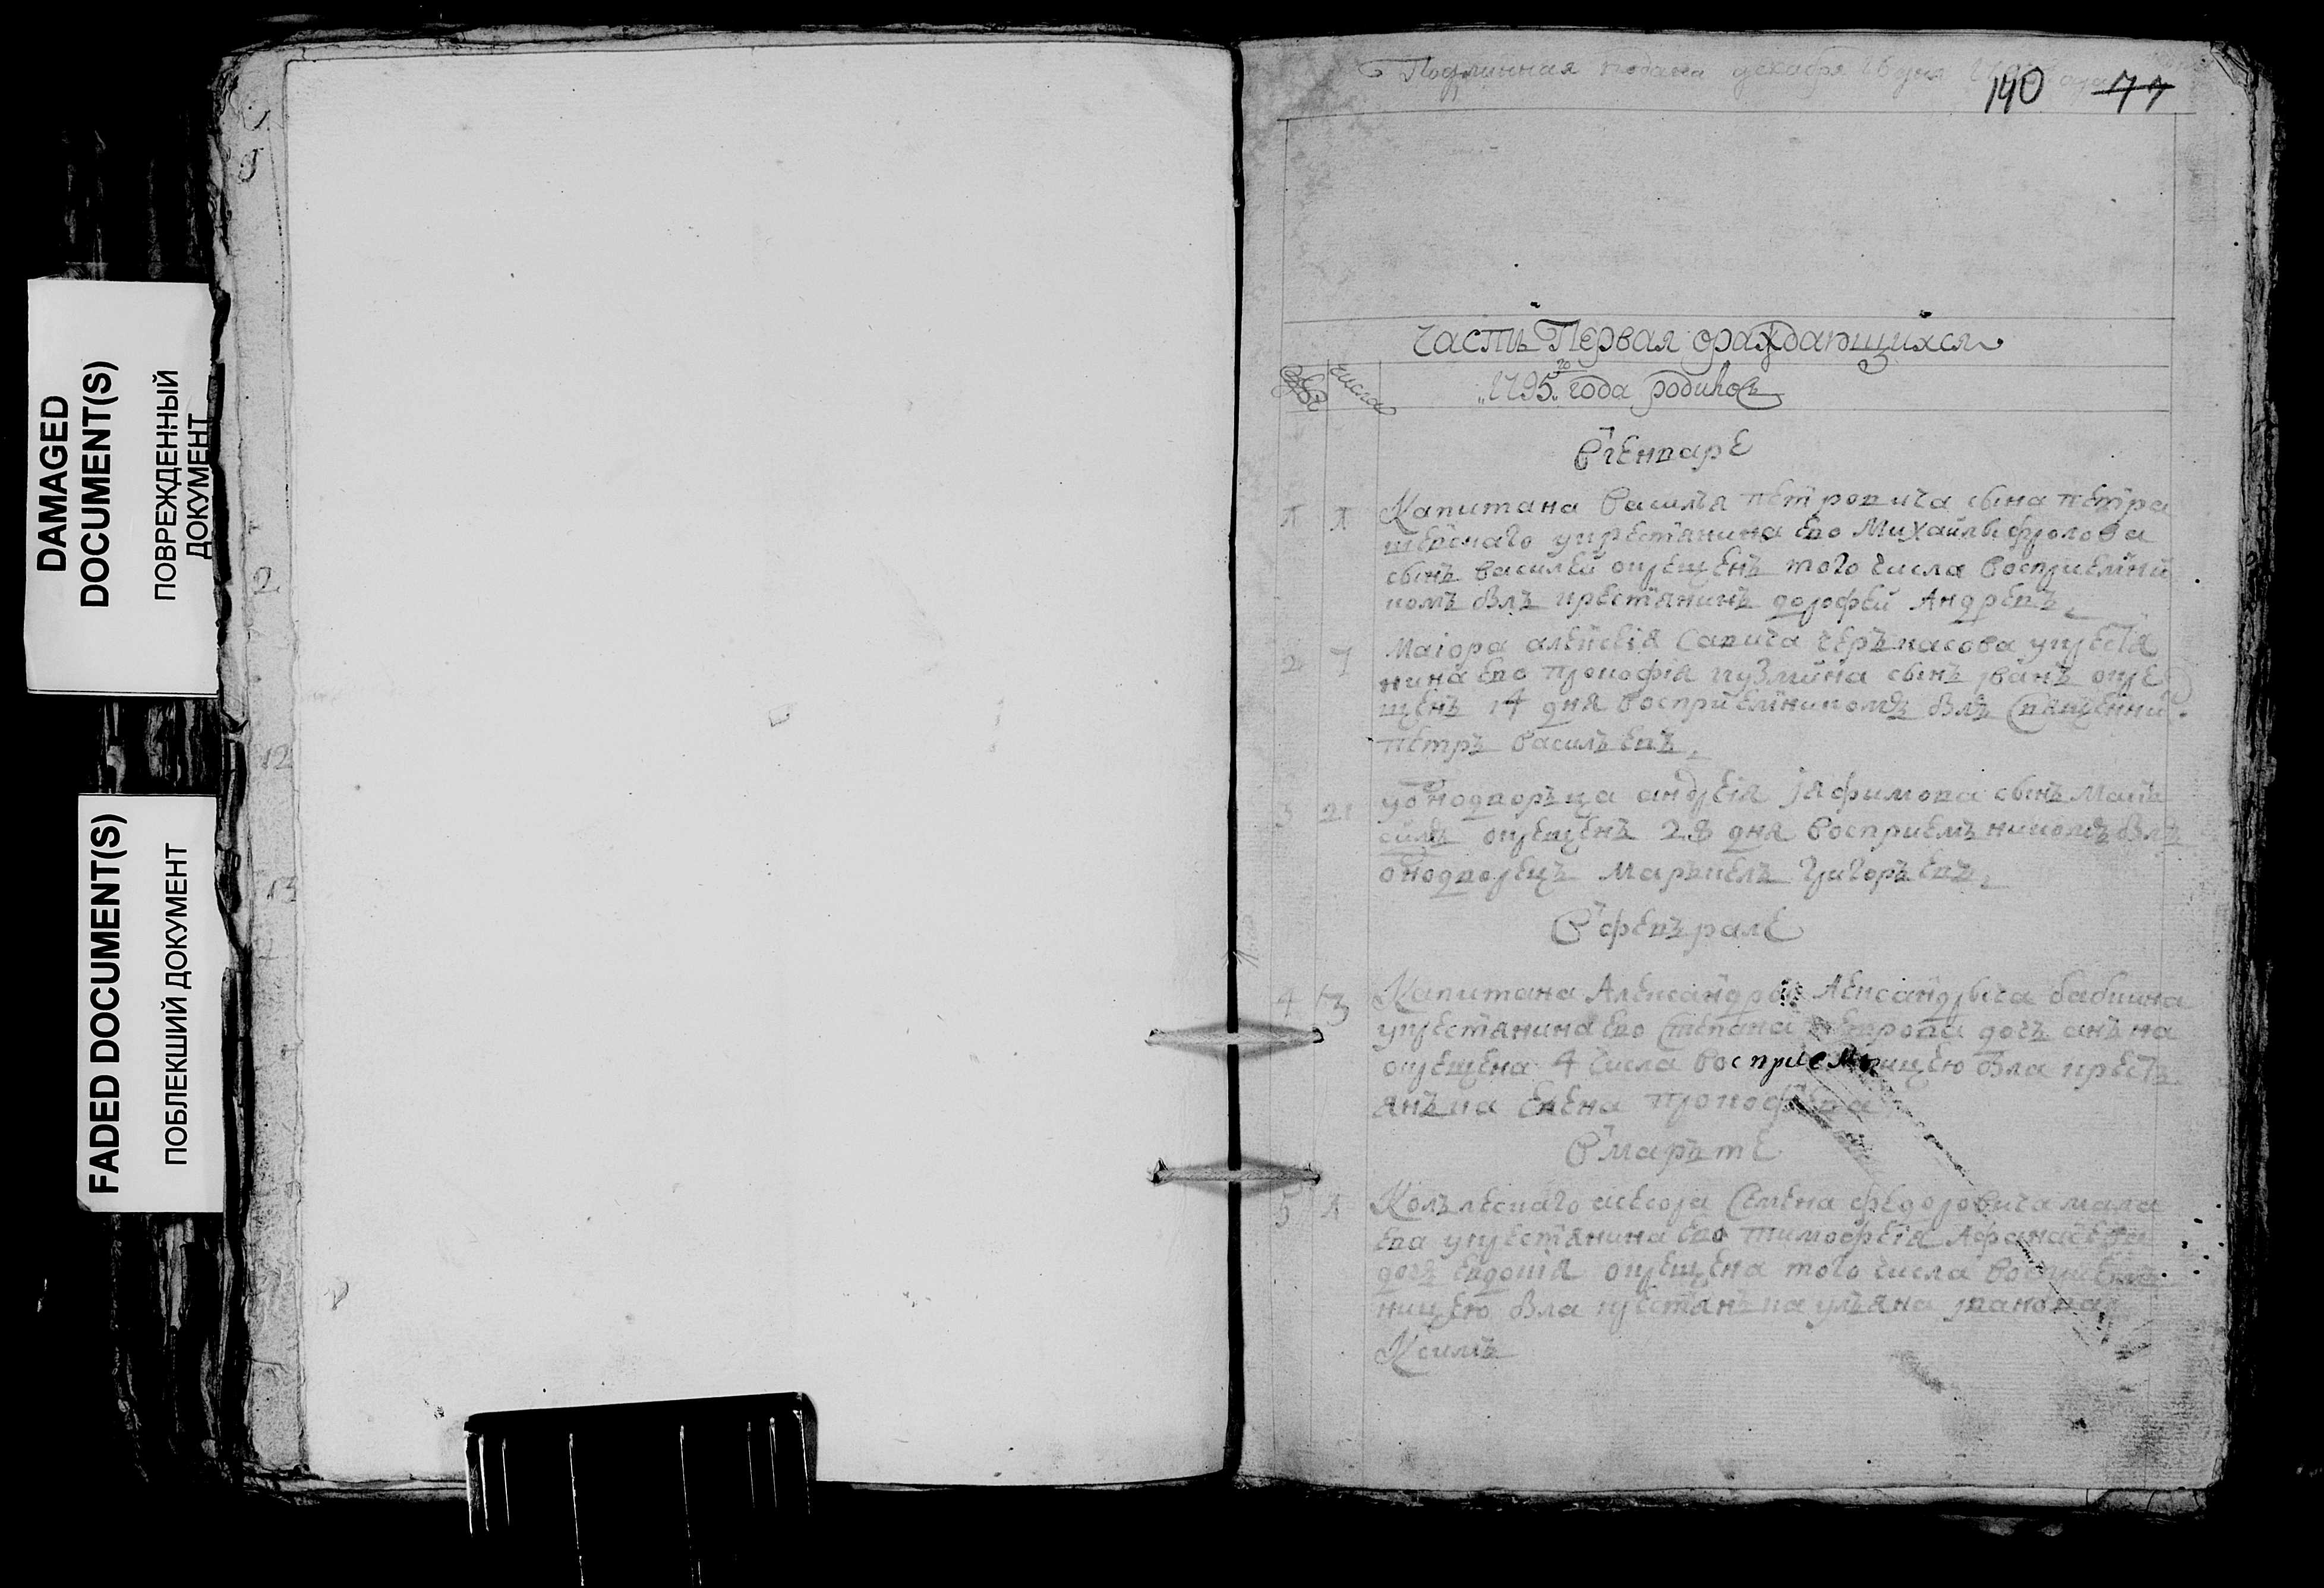 DAMAGED
DOCUMENT(S)
ПОВРЕЖДЕННЫЙ
ДОКУМЕНТ
FADED DOCUMENT(S)
ПОБЛЕКШИЙ ДОКУМЕНТ
2
12
13
Подлинная подана декабря 26 дня
140 77
часть Первая ораждающихся
числа
1795 го года родилось
в генваре
1 1 Капитана василья петровича сына петра
шевскаго укрестьянина ево Михайлы фролова
сынъ василей окрещенъ того числа восприемни
комъ былъ крестьянинъ дорофей Андревъ
2 7 Маіора алексеія Савича черъкасова укрестья
нина ево прокофія кузмина сынъ іванъ окре
щенъ 14 дня восприемникомъ былъ Священни
петръ васильевъ
3 21 уоднодворъца андреія іафимова сынъ Макъ
симъ окрещенъ 28 дня восприемъникомъ былъ
однодворецъ Маръкелъ григоръевъ
в февърале
4 3 Капитана Александры Александрыча бабкина
укрестьянина ево Степана дочь анъна
окрещена 4 числа восприемницею была кресть
янъка елена прокофева
в маръте
5 1 Колълескаго асесора Семена федоровича мала
ева укрестьянина ево тимофеія Афанасева
дочь евдокія окрещена того числа восприемъ
ницею была крестьянъка ульяна іванова
Ксимъ